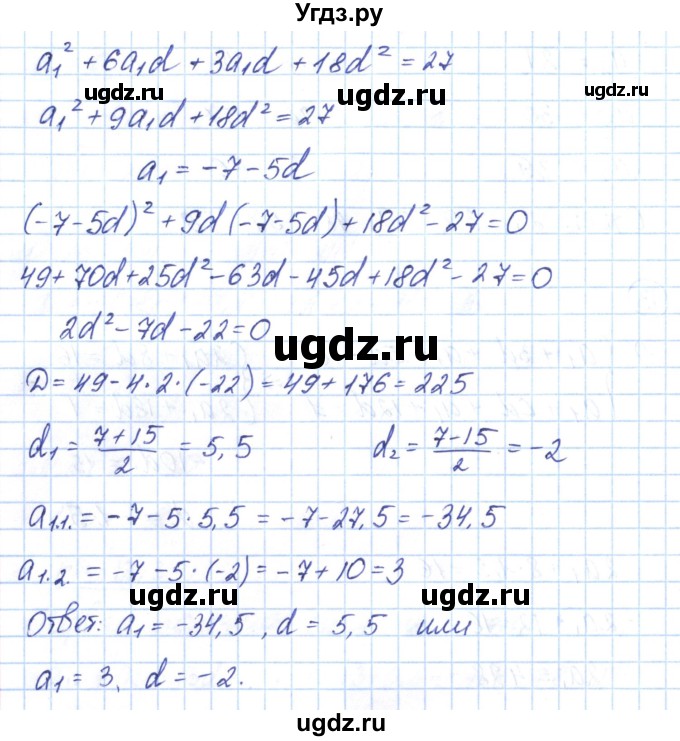 Угдз.ру
a₁² + 6a₁d + 3a₁d + 18d² = 27
ugdz.ru ugdz.ru ugdz.ru
a₁² + 9a₁d + 18d² = 27
a₁ = -7 - 5d
(-7-5d)² + 9d(-7-5d) + 18d² - 27 = 0
49 + 70d + 25d² - 63d - 45d + 18d² - 27 = 0
2d² - 7d - 22 = 0
ugdz.ru
D = 49 - 4·2·(-22) = 49 + 176 = 225
d₁ = (7+15)/2 = 5,5 d₂ = (7-15)/2 = -2
a₁.₁. = -7 - 5·5,5 = -7 - 27,5 = -34,5
a₁.₂. = -7 - 5·(-2) = -7 + 10 = 3
ugdz.ru ugdz.ru
Ответ: a₁ = -34,5, d = 5,5 или
a₁ = 3, d = -2.
ugdz.ru